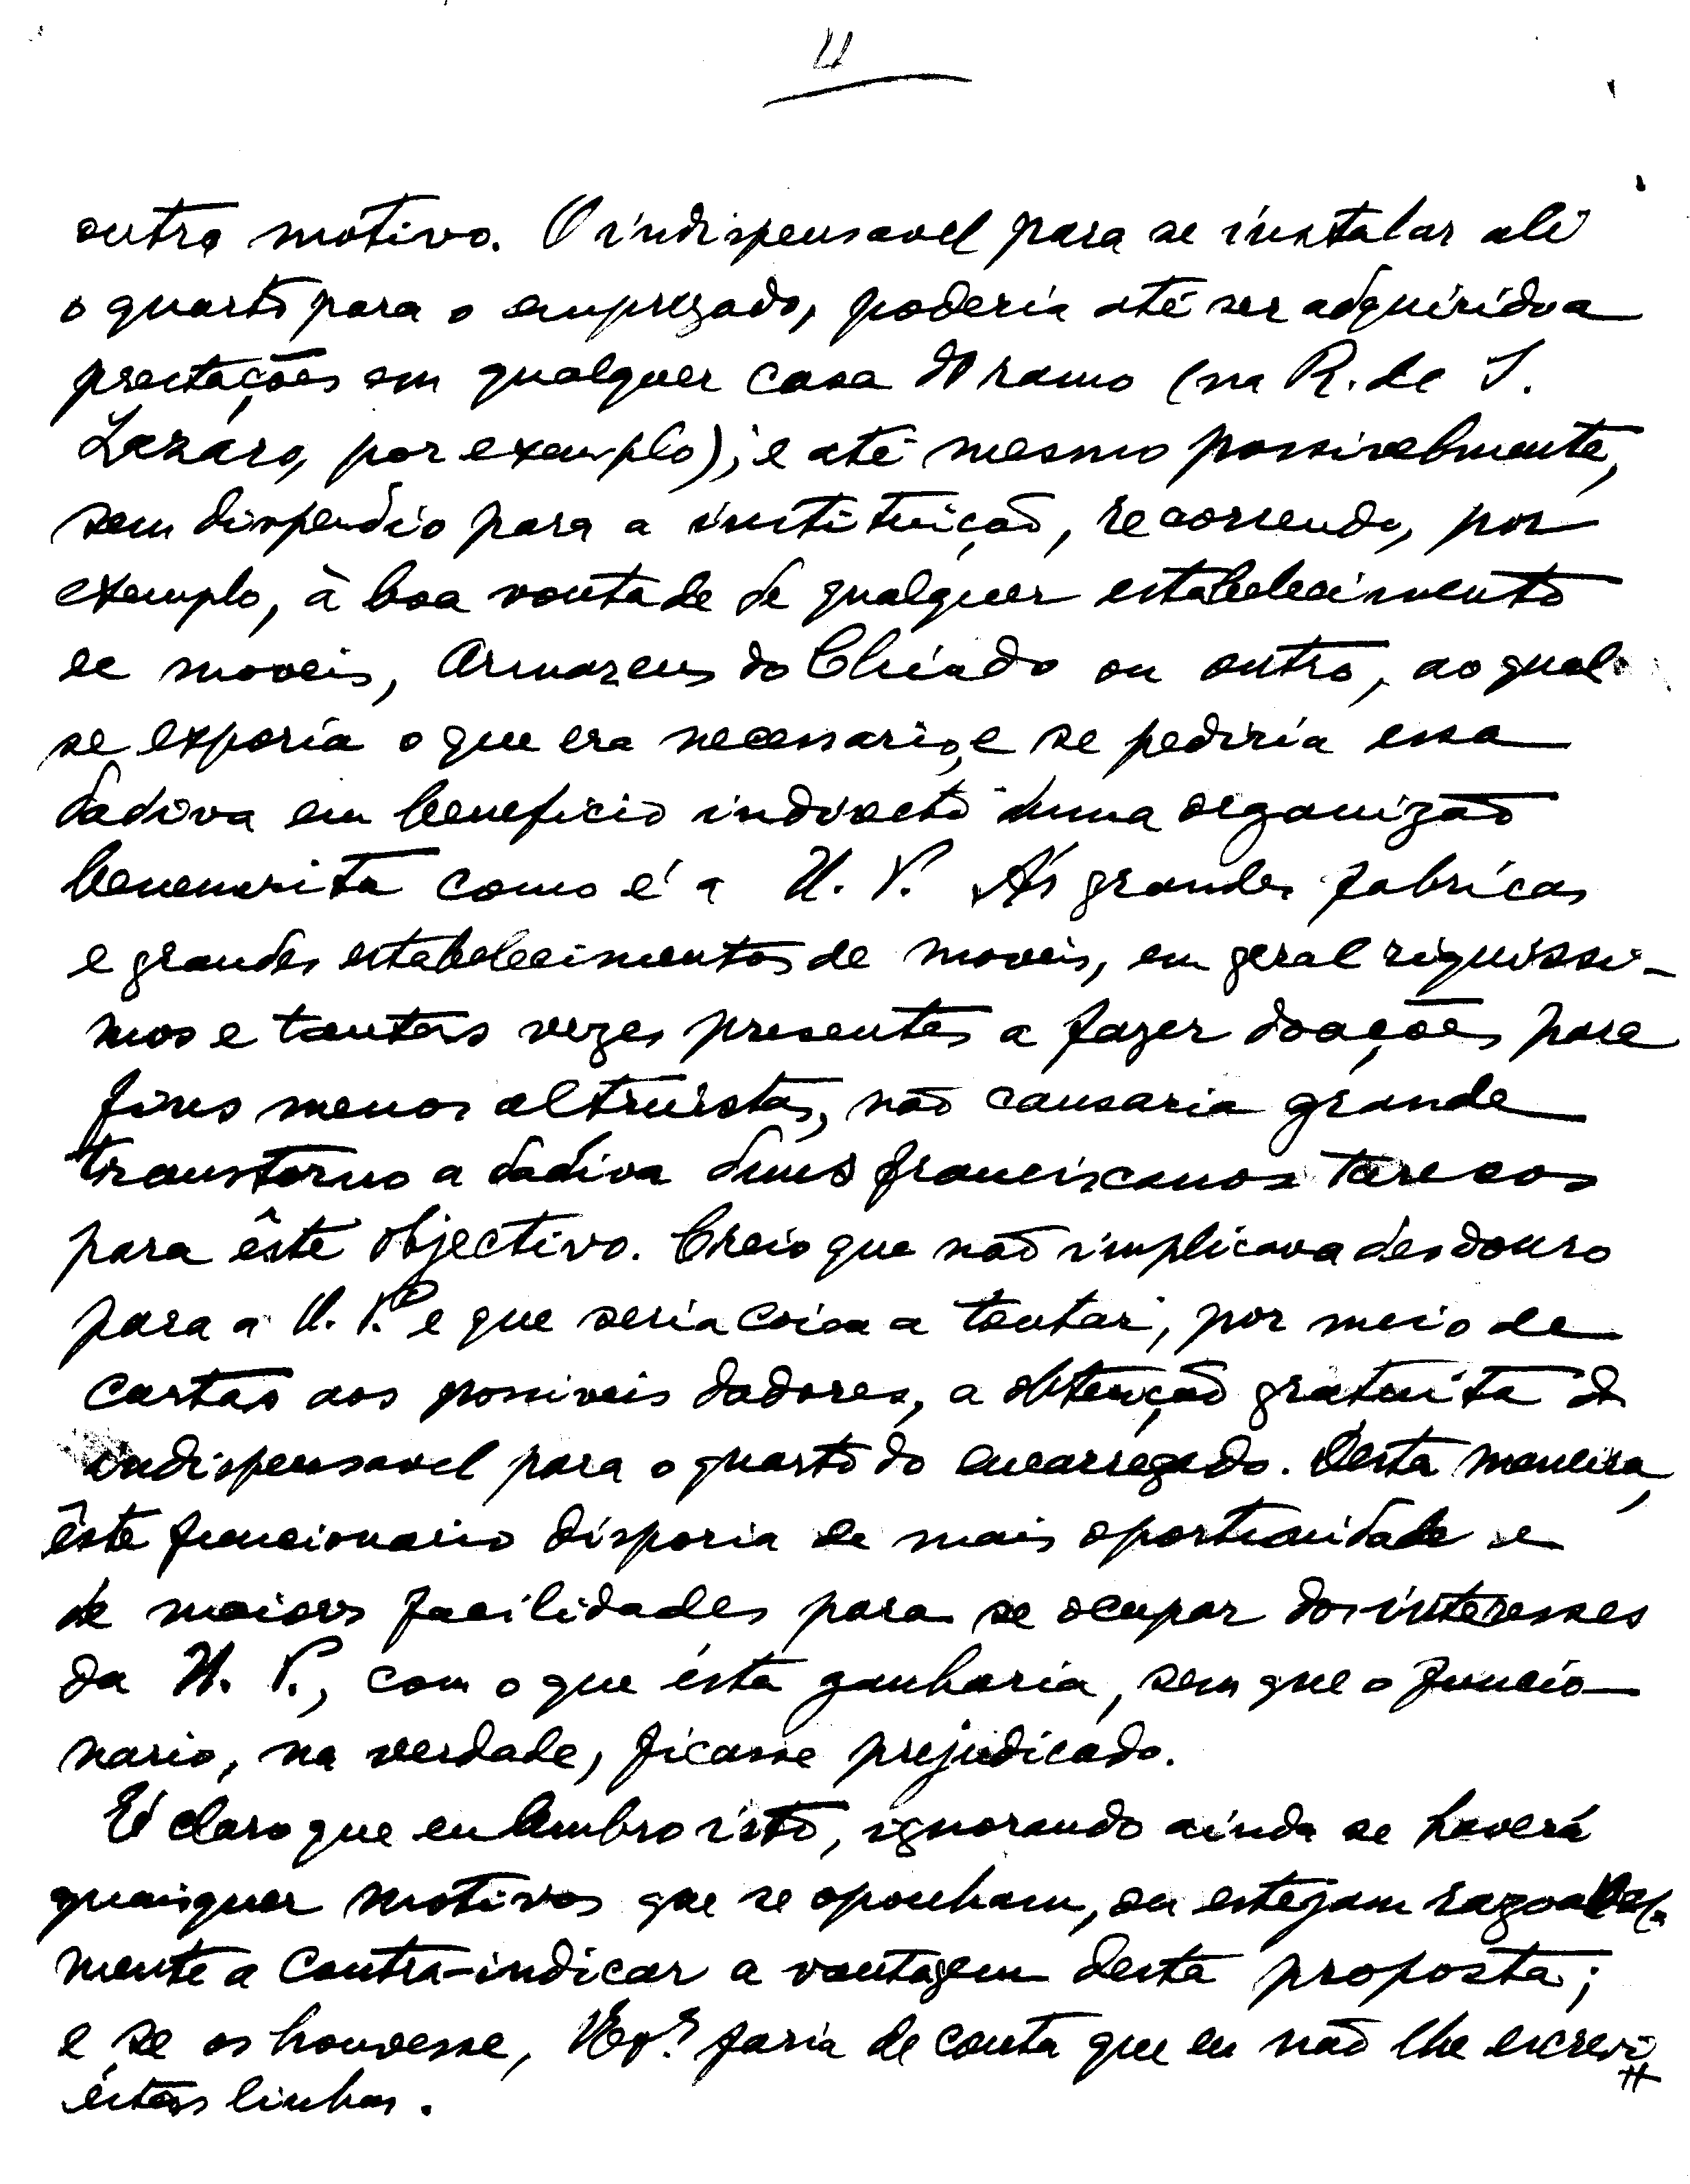 4
outro motivo. O indispensavel para se instalar ali
o quarto para o empregado, poderia até ser adquirido a
prestações em qualquer casa do ramo (na R. de S.
Lazaro, por exemplo); e até mesmo possivelmente,
sem dispendio para a instituição, recorrendo, por
exemplo, à boa vontade de qualquer estabelecimento
de moveis, Armazens do Chiado ou outro, ao qual
se exporia o que era necessario, e se pediria essa
dadiva em beneficio indirecto duma organizão
benemerita como é a U. P. Às grandes fabricas
e grandes estabelecimentos de moveis, em geral riquissi-
mos e tantas vezes presentes a fazer doações para
fins menos altruistas, não causaria grande
transtorno a dadiva duns franciscanos tarecos
para êste objectivo. Creio que não implicava desdouro
para a U. P. e que seria coisa a tentar, por meio de
cartas aos possiveis dadores, a obtenção gratuita do
indispensavel para o quarto do encarregado. Desta maneira,
êste funcionario disporia de mais oportunidade e
de maiores facilidades para se ocupar dos interesses
da U. P., com o que ésta ganharia, sem que o funcio-
nario, na verdade, ficasse prejudicado.
É claro que eu lembro isto, ignorando ainda se haverá
quaisquer motivos que se oponham, ou estejam razoavel-
mente a contra-indicar a vantagem desta proposta;
e se os houvesse, faria de conta que eu não lhe escrevi
éstas linhas.